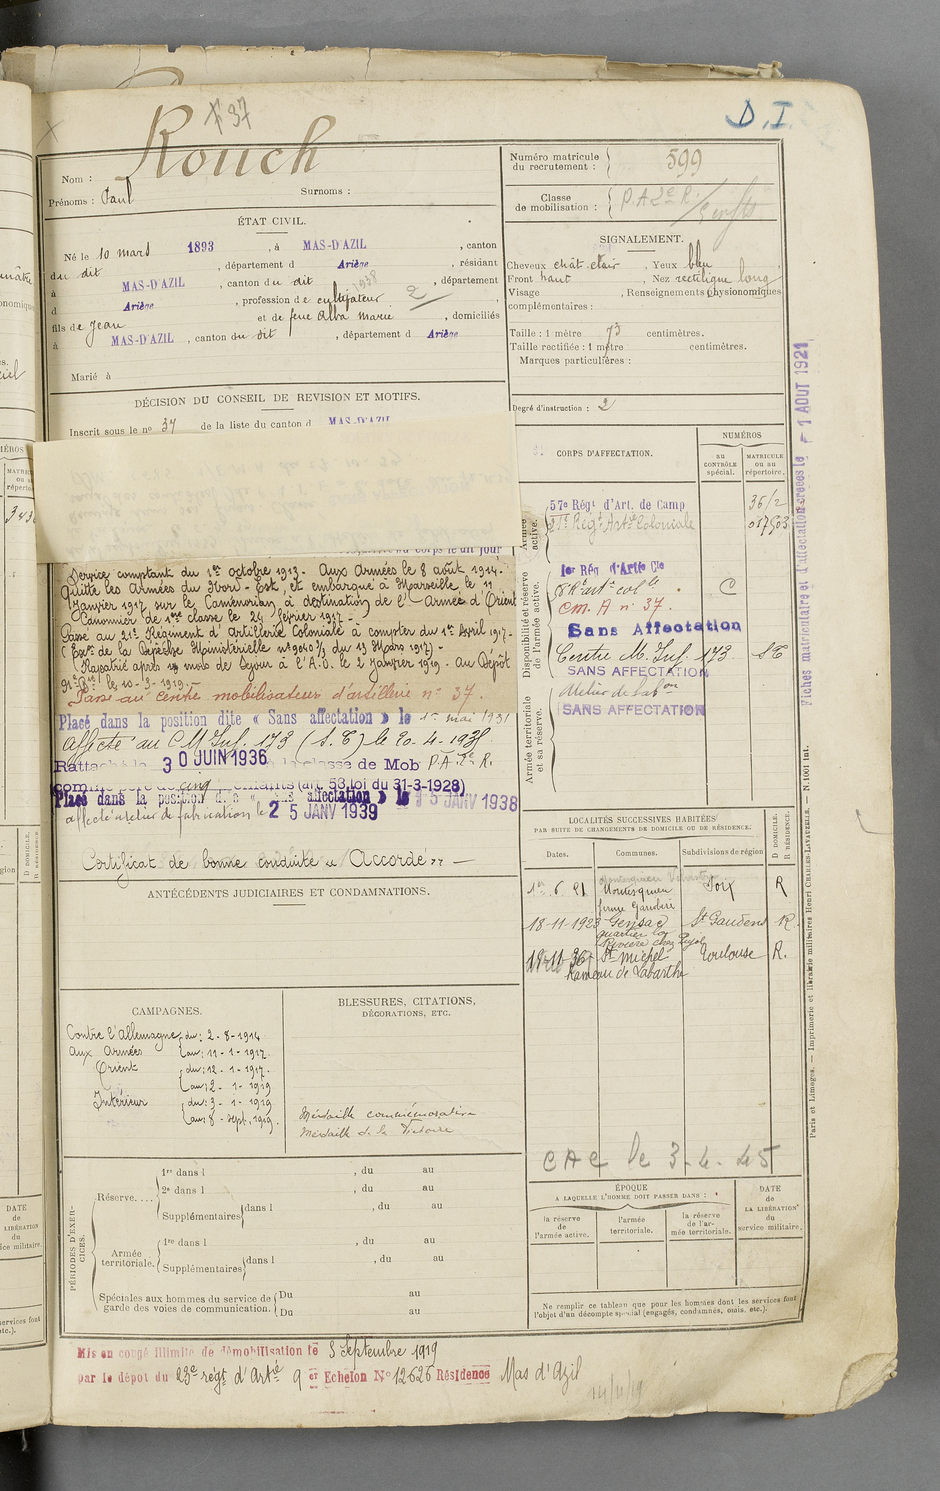 37
D.I.
Rouch
Nom :
Prénoms : Paul
Surnoms :
Numéro matricule du recrutement : 599
Classe de mobilisation : P.A 2e R.
ÉTAT CIVIL.
Né le 10 mars 1893, à MAS-D'AZIL, canton
du dit, département d Ariège, résidant
à MAS-D'AZIL, canton du dit, département
d Ariège, profession de cultivateur
fils de Jean et de feue Alba Marie, domiciliés
à MAS-D'AZIL, canton du dit, département d Ariège
Marié à
SIGNALEMENT.
Cheveux chât clair, Yeux bleu
Front haut, Nez rectiligne long
Visage, Renseignements physionomiques
complémentaires :
Taille : 1 mètre 73 centimètres.
Taille rectifiée : 1 mètre centimètres.
Marques particulières :
Degré d'instruction : 2
DÉCISION DU CONSEIL DE REVISION ET MOTIFS.
Inscrit sous le no 37 de la liste du canton d MAS-D'AZIL
Service comptant du 1er octobre 1913. Aux Armées le 8 août 1914.
Quitte les Armées du Nord-Est, et embarque à Marseille le 11
Janvier 1917 sur le Caméronian à destination de l'Armée d'Orient
Canonnier de 1ère classe le 24 février 1917 -
Passé au 21e Régiment d'Artillerie Coloniale à compter du 1er Avril 1917 -
(Exon de la Dépêche Ministérielle no 9040 3/3 du 13 Mars 1917) -
Rapatrié après mois de séjour à l'A.O. le 2 Janvier 1919. Au Dépôt
le 10-3-1919.
Passé au centre mobilisateur d'artillerie no 37.
Placé dans la position dite « Sans affectation » le 1er mai 1931
Affecté au C.M. Inf. 173 (S.E) le 20-4-193
Rattaché le 30 JUIN 1936 à la classe de Mob P.A. 2e R.
comme père de cinq enfants (art. 58 loi du 31-3-1928)
Placé dans la position dite « Sans affectation » le 15 JANV 1938
affecté atelier de fabrication le 25 JANV 1939
Certificat de bonne conduite « Accordé » —
CORPS D'AFFECTATION.
NUMÉROS
au CONTRÔLE spécial.
MATRICULE ou au répertoire.
Armée active.
57e Régt d'Art. de Camp 36/2
21e Régt Artie Coloniale 017503
Disponibilité et réserve de l'armée active.
1er Rég d'Artie Cle
C
C.M. A no 37.
Sans Affectation
Centre M. Inf. 173. S E
SANS AFFECTATION
Armée territoriale et sa réserve.
Atelier de fabon
SANS AFFECTATION
Fiches matriculaire et d'affectation créées le 1 AOUT 1921
ANTÉCÉDENTS JUDICIAIRES ET CONDAMNATIONS.
LOCALITÉS SUCCESSIVES HABITÉES
PAR SUITE DE CHANGEMENTS DE DOMICILE OU DE RÉSIDENCE.
Dates. Communes. Subdivisions de région D DOMICILE. R RÉSIDENCE.
1er.6.21 Montesquieu Foix R
18-11-1923 Gensac St Gaudens R.
St Michel Toulouse R.
Hameau de Labarthe
CAMPAGNES.
Contre l'Allemagne du : 2-8-1914
Aux Armées au : 11-1-1917.
Orient du : 12-1-1917.
au : 2-1-1919
Intérieur du : 3-1-1919
au : 8-sept. 1919.
BLESSURES, CITATIONS,
DÉCORATIONS, ETC.
Médaille commémorative
Médaille de la Victoire
CAC le 3-4-45
PÉRIODES D'EXERCICES.
Réserve....
1re dans l , du au
2e dans l , du au
Supplémentaires dans l , du au
Armée territoriale.
1re dans l , du au
Supplémentaires dans l , du au
Spéciales aux hommes du service de garde des voies de communication.
Du au
Du au
ÉPOQUE
A LAQUELLE L'HOMME DOIT PASSER DANS :
la réserve de l'armée active.
l'armée territoriale.
la réserve de l'armée territoriale.
DATE de LA LIBÉRATION du service militaire.
Ne remplir ce tableau que pour les hommes dont les services font
l'objet d'un décompte spécial (engagés, condamnés, omis, etc.).
Paris et Limoges. — Imprimerie et librairie militaires Henri CHARLES-LAVAUZELLE. — N. 1001 int.
Mis en congé illimité de démobilisation le 3 Septembre 1919
par le dépot du 23e régt d'Artie 9 er Echelon No 12626 Résidence Mas d'Azil